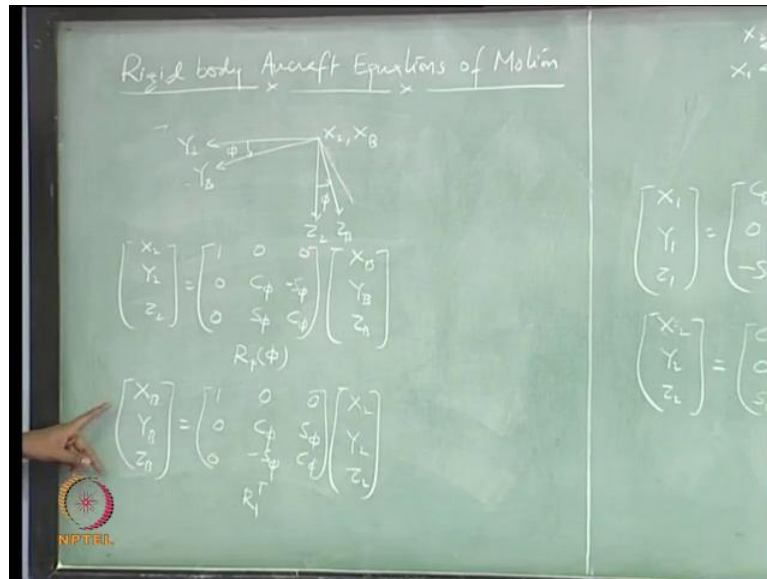 Rigid body Aircraft Equations of Motion
Y₂ φ X₂, X_B
Y_B φ
Z₂ Z_B
[X₂ Y₂ Z₂] = [1 0 0; 0 Cφ -Sφ; 0 Sφ Cφ] [X_B Y_B Z_B]
R₁(φ)
[X_B Y_B Z_B] = [1 0 0; 0 Cφ Sφ; 0 -Sφ Cφ] [X₂ Y₂ Z₂]
R₁ᵀ
X₂
X₁
[X₁ Y₁ Z₁] = [0 -S
[X₂ Y₂ Z₂] = [C 0 S
NPTEL